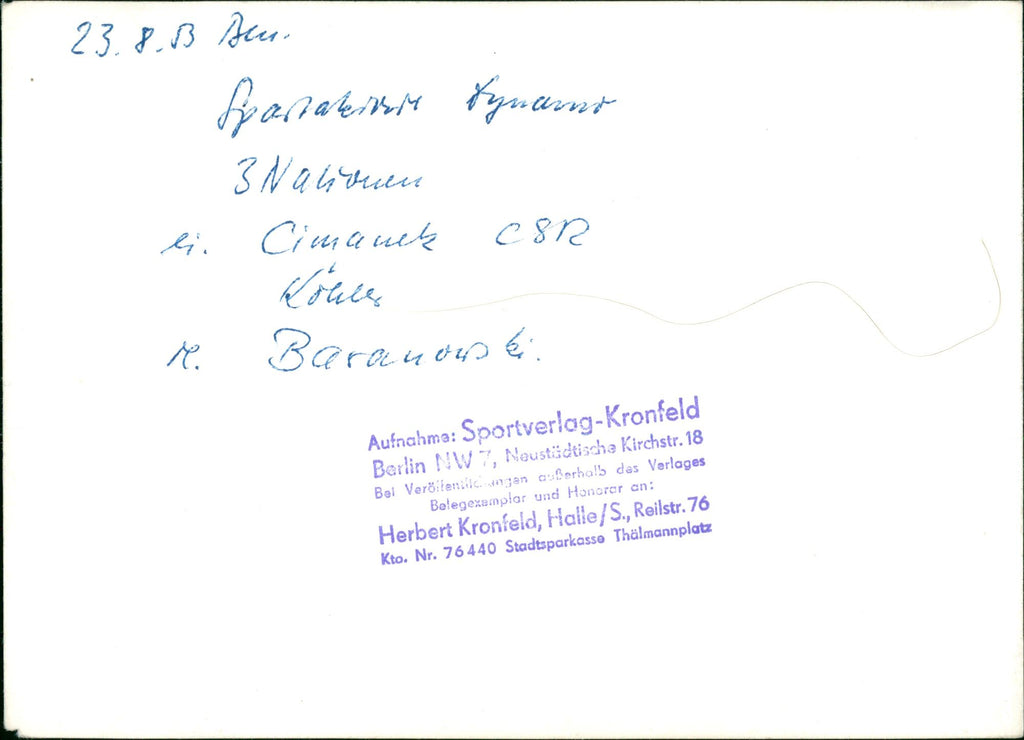 23.8.53 Bln.
Spartakiade Dynamo
3 Nationen
li. Cimanek CSR
Köhler
re. Baranowski.
Aufnahme: Sportverlag-Kronfeld
Berlin NW 7, Neustädtische Kirchstr. 18
Bei Veröffentlichungen außerhalb des Verlages
Belegexemplar und Honorar an:
Herbert Kronfeld, Halle/S., Reilstr. 76
Kto. Nr. 76440 Stadtsparkasse Thälmannplatz